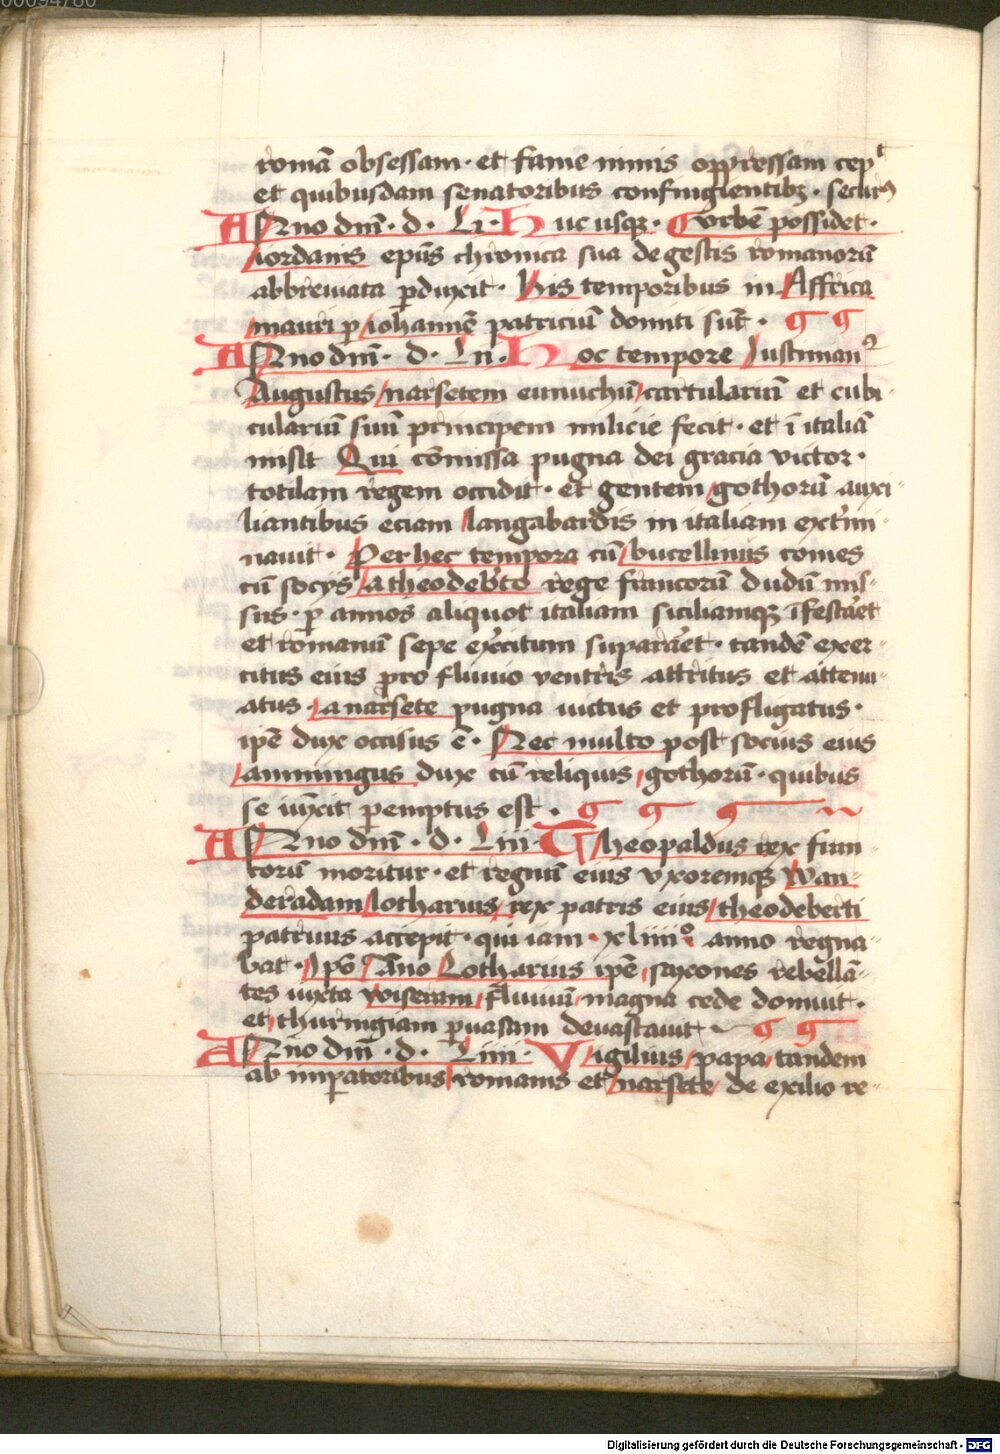 romā obsessam · et fame nimis oppressam cepᵗ
et quibusdam senatoribus confugientibꝫ · securꝰ
Anno dm̄ · d · Lı · Huc usqꝫ · urbē possidet ·
iordanis ep̄us chronica sua de gestis romanorū
abbreuiata ꝑduxit · His temporibus in Affrica
mauri ꝑ iohannē patriciū domiti sūt ·
Anno dm̄ · d · Lıı · Hoc tempore Iustinianꝰ
Augustus narsetem eunuchū cartulariū et cubi
culariū suū principem milicie fecit · et ī italiā
misit Qui cōmissa pugna dei gracia victor ·
totilam regem occidit · et gentem gothorū auxi
liantibus eciam langabardis in italiam ext'mi
nauit · Per hec tempora cū bucellinus comes
cū socijs a theodeb'to rege francorū dudū mis
sus · ꝑ annos aliquot italiam siciliamqꝫ īfestaēt
et romanū sepe exc̄itum suparaēt · tandē exer
citus eius pro fluuio ventris attritus et attenu
atus · a narsete pugna uictus et profligatus ·
ipē dux occisus ē · Nec multo post socius eius
ammingus dux cū reliquis gothorū · quibus
se iūxit ꝑemptus est ·
Anno dm̄ · d · Lııı · Theopaldus rex fran
corū moritur · et regnū eius vxoremqꝫ Wan
deradam lotharius rex patris eius theodeberti
patruus accepit · qui iam · xliiiiº anno regna
bat · Ipō āno Lotharius ipē saxones rebellā
tes iuxta wiseram fluuiū magna cede domuit ·
et thuringiam ꝑuasam deuastauit ·
Anno dm̄ · d · Lıııı · Vigilius papa tandem
ab imꝑatoribus romanis et narsete de exilio re
Digitalisierung gefördert durch die Deutsche Forschungsgemeinschaft - DFG